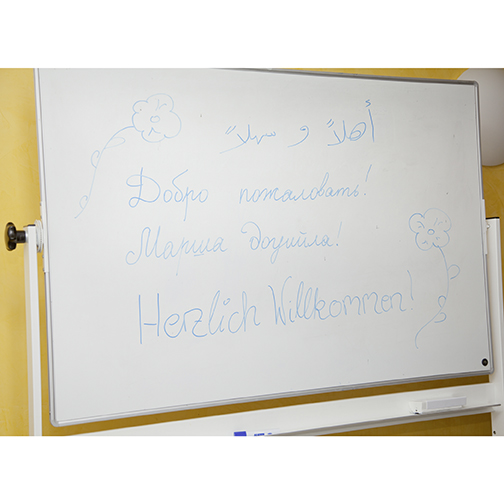 أهلاً و سهلاً
Добро пожаловать!
Марша
Herzlich Willkommen!